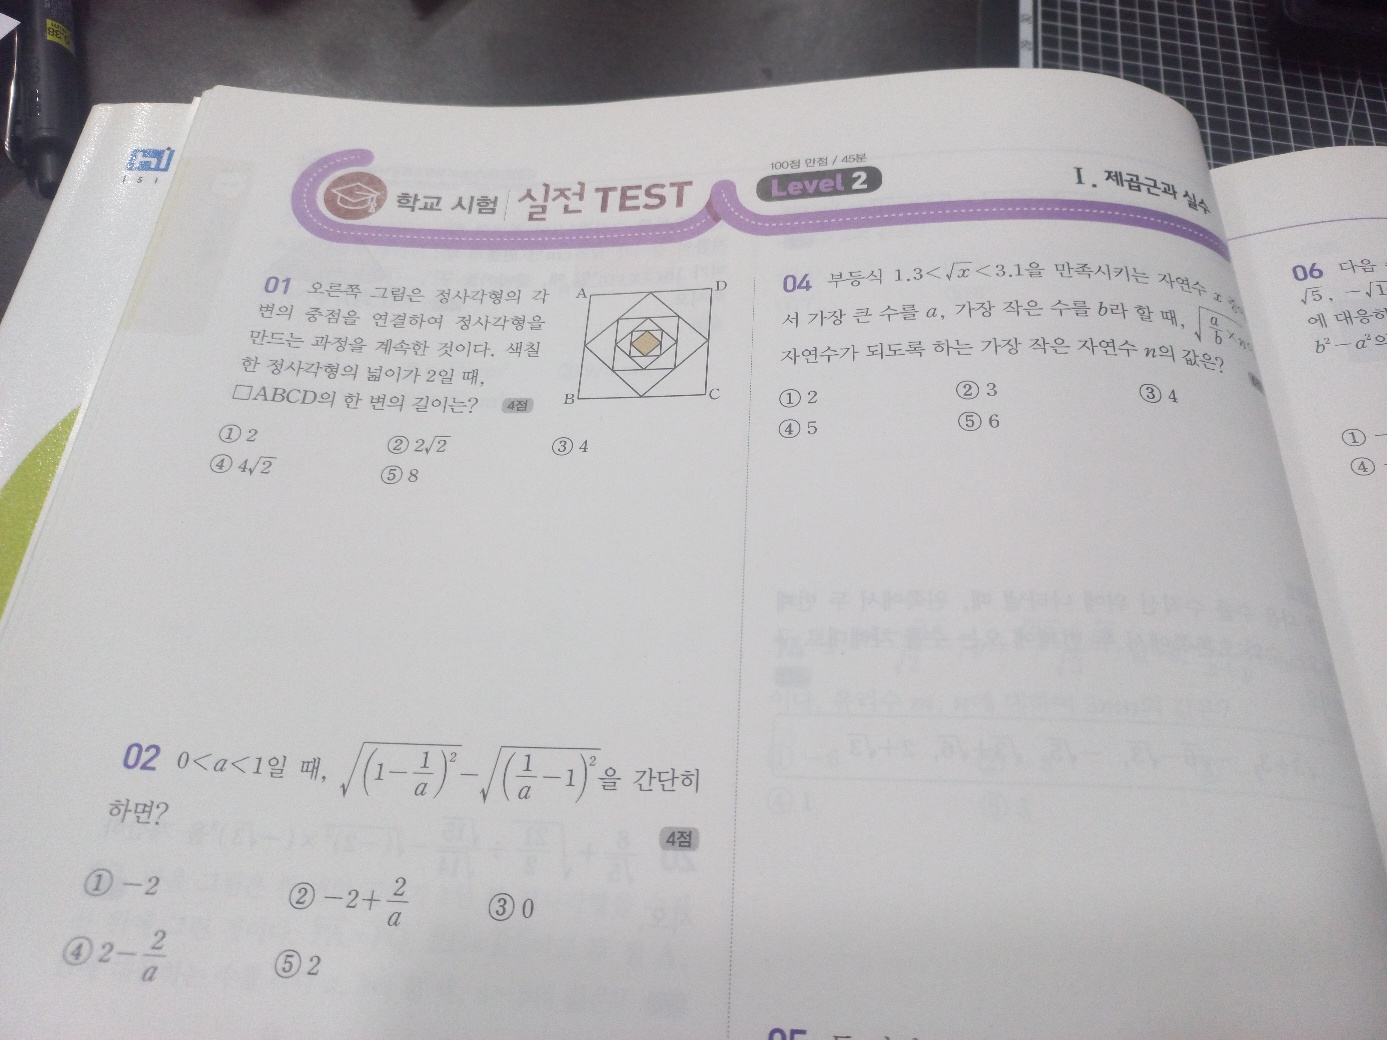 학교 시험 실전 TEST
100점 만점 / 45분
Level 2
Ⅰ. 제곱근과 실수
01 오른쪽 그림은 정사각형의 각
변의 중점을 연결하여 정사각형을
만드는 과정을 계속한 것이다. 색칠
한 정사각형의 넓이가 2일 때,
□ABCD의 한 변의 길이는? 4점
A D
B C
① 2 ② 2√2 ③ 4
④ 4√2 ⑤ 8
02 0<a<1일 때, √(1-1/a)² - √(1/a-1)²을 간단히
하면?
4점
① -2 ② -2+2/a ③ 0
④ 2-2/a ⑤ 2
04 부등식 1.3<√x<3.1을 만족시키는 자연수 x
서 가장 큰 수를 a, 가장 작은 수를 b라 할 때, √(a/b×n
자연수가 되도록 하는 가장 작은 자연수 n의 값은?
① 2 ② 3 ③ 4
④ 5 ⑤ 6
05
06 다음
√5, -√1
에 대응하
b²-a²의
① -
④